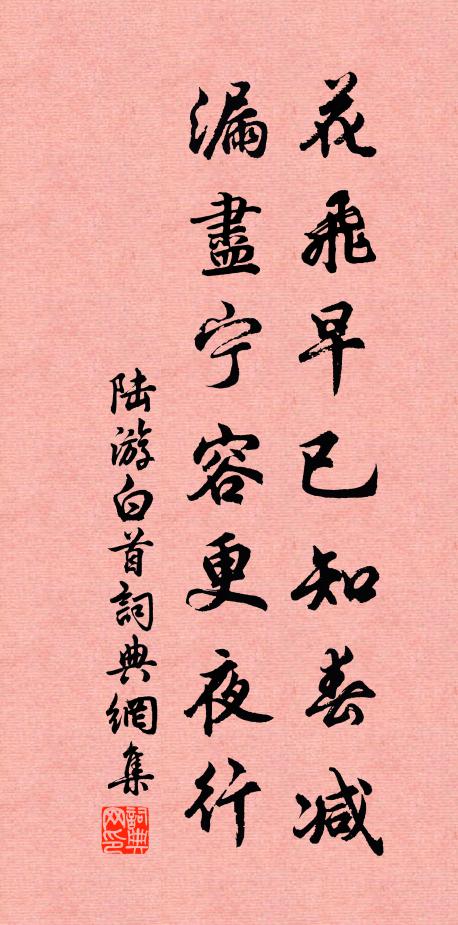 花飛早已知春减
漏盡宁容更夜行
陆游白首詞典網集
詞典网印